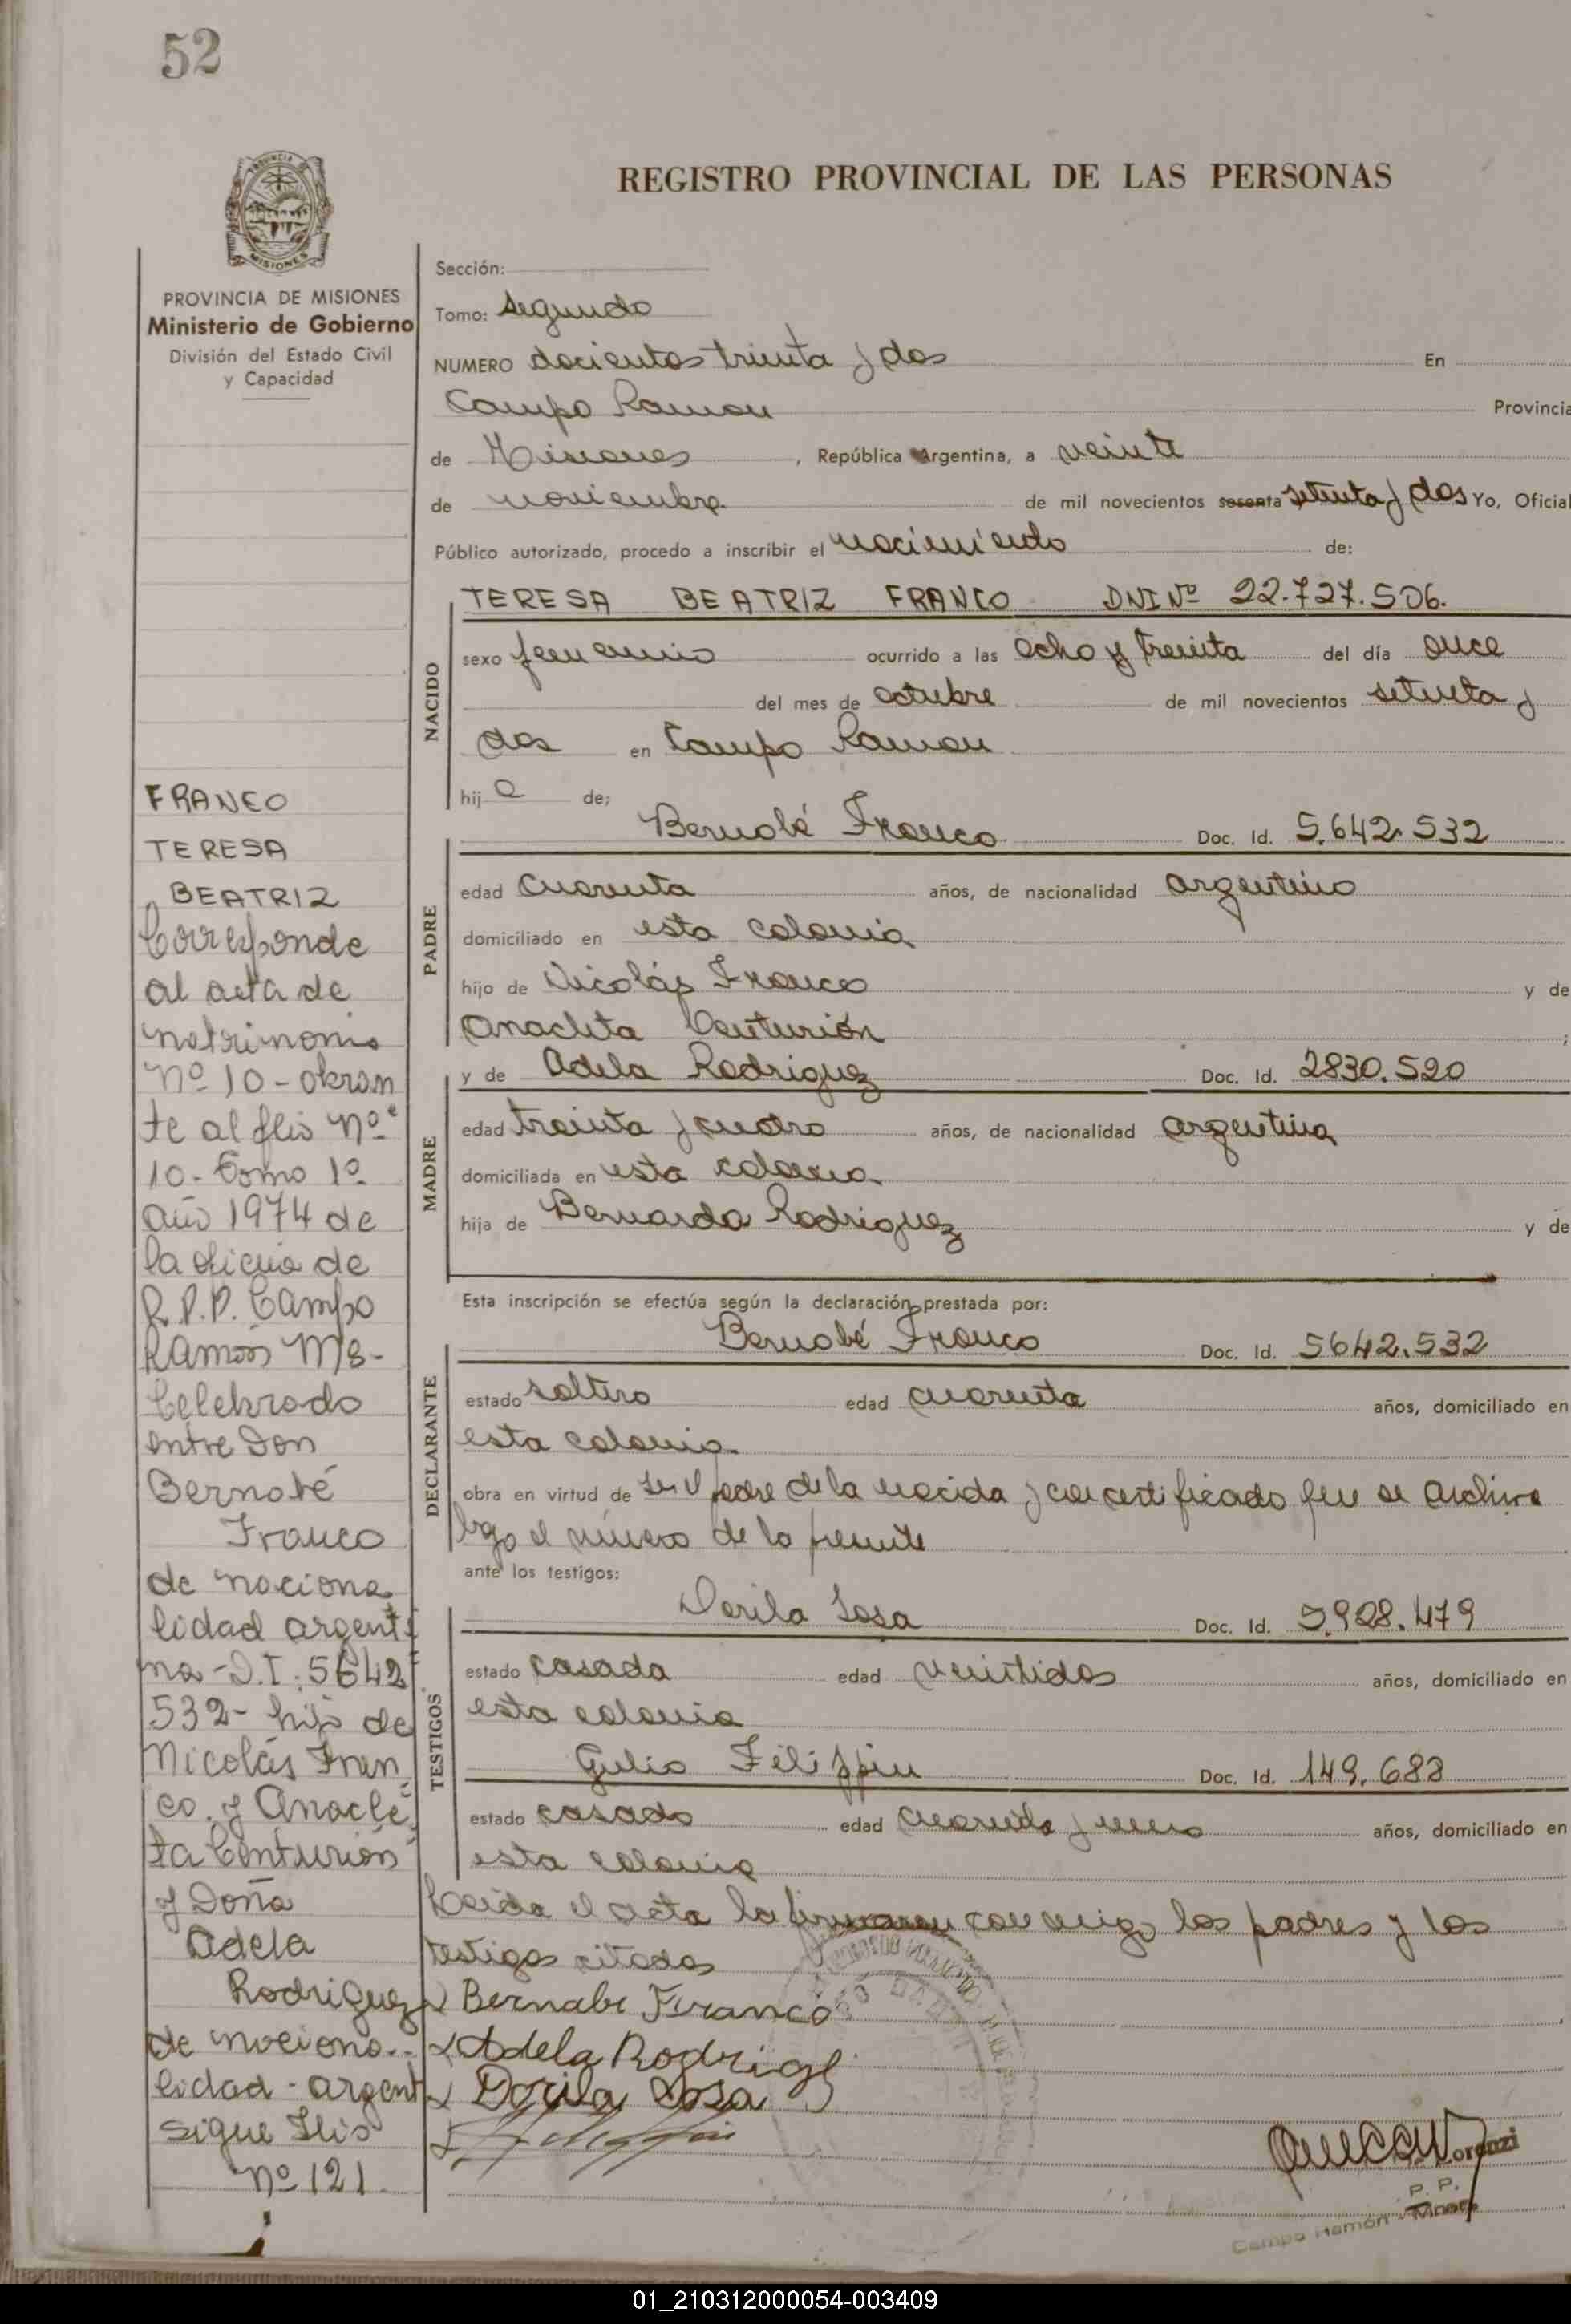 52
REGISTRO PROVINCIAL DE LAS PERSONAS
PROVINCIA DE MISIONES
Ministerio de Gobierno
División del Estado Civil
y Capacidad
FRANCO
TERESA
BEATRIZ
Corresponde
al acta de
matrimonio
Nº 10 - obran
te al flio Nº
10 - Tomo 1º
año 1974 de
la oficina de
R.P.P. Campo
Ramón Ms -
Celebrado
entre Don
Bernabé
Franco
de naciona
lidad argenti
na - D.I. 5642
532 - hijo de
Nicolás Fran
co y Anacle
ta Centurión
y Doña
Adela
Rodriguez
de naciona
lidad - argent
sigue flio
nº 121.
Sección:
Tomo: Segundo
NUMERO docientos treinta y dos En
Campo Ramon Provincia
de Misiones, República Argentina, a veinte
de noviembre de mil novecientos sesenta setenta y dos Yo, Oficial
Público autorizado, procedo a inscribir el nacimiento de:
NACIDO
TERESA BEATRIZ FRANCO DNI Nº 22.727.506.
sexo femenino ocurrido a las ocho y treinta del día once
del mes de octubre de mil novecientos setenta y
dos en Campo Ramon
hij a de;
PADRE
Bernabé Franco Doc. Id. 5.642.532
edad cuarenta años, de nacionalidad argentino
domiciliado en esta colonia
hijo de Nicolás Franco y de
Anacleta Centurión ;
MADRE
y de Adela Rodriguez Doc. Id. 2830.520
edad treinta y cuatro años, de nacionalidad argentina
domiciliada en esta colonia
hija de Bernarda Rodriguez y de
Esta inscripción se efectúa según la declaración prestada por:
DECLARANTE
Bernabé Franco Doc. Id. 5642.532
estado soltero edad cuarenta años, domiciliado en
esta colonia
obra en virtud de ser el padre de la nacida y con certificado que se archiva
bajo el número de la presente
ante los testigos:
TESTIGOS
Dorila Sosa Doc. Id. 5.928.479
estado casada edad veintidos años, domiciliado en
esta colonia
Julio Filippin Doc. Id. 149.688
estado casado edad cuarenta y años, domiciliado en
esta colonia
Leida el acta la firmaron conmigo los padres y los
testigos citados
Bernabe Franco
Adela Rodrigez
Dorila Sosa
orenzi
P. P.
Campo Ramón - Mnes
01_210312000054-003409